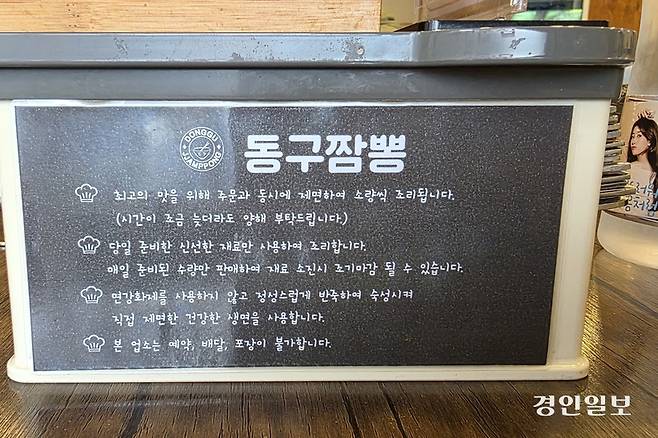 DONGGU
JJAMPPONG
동구짬뽕
최고의 맛을 위해 주문과 동시에 제면하여 소량씩 조리됩니다.
(시간이 조금 늦더라도 양해 부탁드립니다.)
당일 준비한 신선한 재료만 사용하여 조리합니다.
매일 준비된 수량만 판매하여 재료 소진시 조기마감 될 수 있습니다.
면강화제를 사용하지 않고 정성스럽게 반죽하여 숙성시켜
직접 제면한 건강한 생면을 사용합니다.
본 업소는 예약, 배달, 포장이 불가합니다.
처럼
경인일보